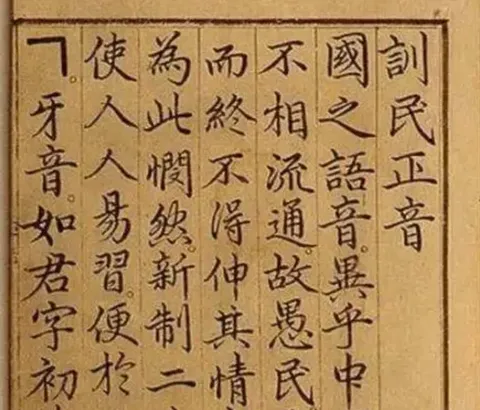 訓民正音
國之語音。異乎中
不相流通。故愚民
而終不得伸其情
為此憫然。新制二
使人人易習。便於
ㄱ牙音。如君字初